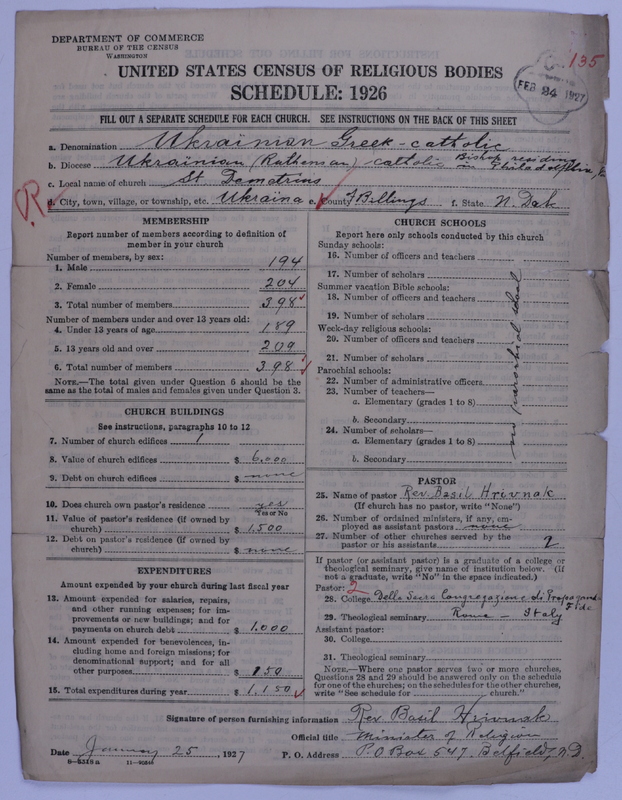 DEPARTMENT OF COMMERCE
BUREAU OF THE CENSUS
WASHINGTON
135
FEB 24 1927
UNITED STATES CENSUS OF RELIGIOUS BODIES
SCHEDULE: 1926
FILL OUT A SEPARATE SCHEDULE FOR EACH CHURCH. SEE INSTRUCTIONS ON THE BACK OF THIS SHEET
a. Denomination Ukrainian Greek-catholic
b. Diocese Ukrainian (Ruthenian)-catholic Bishop residing in Philadelphia, Pa
c. Local name of church St Demetrius
d. City, town, village, or township, etc. Ukraina e. County Billings f. State N. Dak
MEMBERSHIP
Report number of members according to definition of
member in your church
Number of members, by sex:
1. Male 194
2. Female 204
3. Total number of members 398
Number of members under and over 13 years old:
4. Under 13 years of age 189
5. 13 years old and over 209
6. Total number of members 398
NOTE.—The total given under Question 6 should be
same as the total of males and females given under Question 3.
CHURCH BUILDINGS
See instructions, paragraphs 10 to 12
7. Number of church edifices 1
8. Value of church edifices $ 6,000
9. Debt on church edifices $ none
10. Does church own pastor's residence yes
Yes or No
11. Value of pastor's residence (if owned by
church) $ 1,500
12. Debt on pastor's residence (if owned by
church) $ none
EXPENDITURES
Amount expended by your church during last fiscal year
13. Amount expended for salaries, repairs,
and other running expenses; for im-
provements or new buildings; and for
payments on church debt $ 1,000
14. Amount expended for benevolences, in-
cluding home and foreign missions; for
denominational support; and for all
other purposes $ 150
15. Total expenditures during year $ 1,150
CHURCH SCHOOLS
Report here only schools conducted by this church
Sunday schools:
16. Number of officers and teachers
17. Number of scholars
Summer vacation Bible schools:
18. Number of officers and teachers
19. Number of scholars
Week-day religious schools:
20. Number of officers and teachers
21. Number of scholars
Parochial schools:
22. Number of administrative officers
23. Number of teachers—
a. Elementary (grades 1 to 8)
b. Secondary
24. Number of scholars—
a. Elementary (grades 1 to 8)
b. Secondary
no parochial school
PASTOR
25. Name of pastor Rev. Basil Hrivnak
(If church has no pastor, write "None")
26. Number of ordained ministers, if any, em-
ployed as assistant pastors none
27. Number of other churches served by the
pastor or his assistants 2
If pastor (or assistant pastor) is a graduate of a college or
theological seminary, give name of institution below. (If
not a graduate, write "No" in the space indicated.)
Pastor: 2
28. College Della Sacra Congregazione di Propaganda Fide
29. Theological seminary Rome - Italy
Assistant pastor:
30. College
31. Theological seminary
NOTE.—Where one pastor serves two or more churches,
Questions 28 and 29 should be answered only on the schedule
for one of the churches; on the schedules for the other churches,
write "See schedule for church."
Signature of person furnishing information Rev Basil Hrivnak
Official title Minister of Religion
Date January 25, 1927 P. O. Address P.O Box 547, Belfield, N.D.
8-5319 a 11-90546